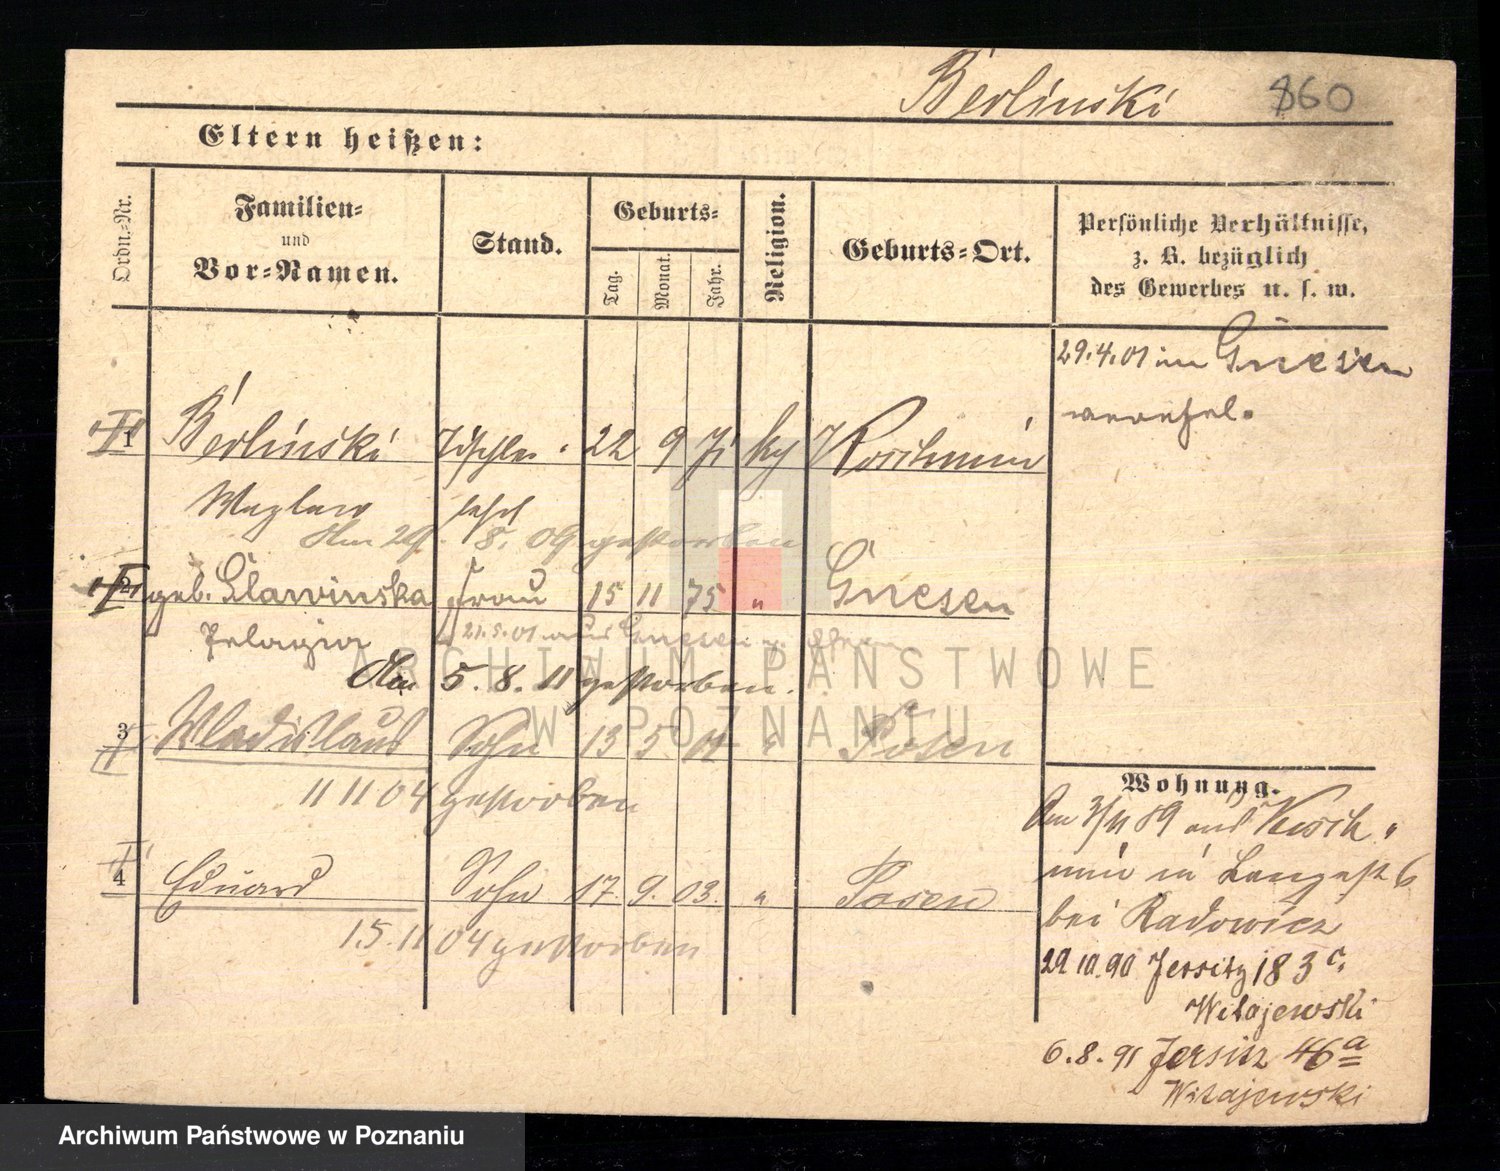 Berlinski 860
Eltern heißen:
Ordn.-Nr.
Familien-
und
Vor-Namen.
Stand.
Geburts-
Tag.
Monat.
Jahr.
Religion.
Geburts-Ort.
Persönliche Verhältnisse,
z. B. bezüglich
des Gewerbes u. s. w.
29.4.01 in Gnesen
1 Berlinski Tischler 22 9 71 Koschmin
Am 29. 8. 09 gestorben
2 geb. Slawinska Frau 15 11 75 " Gnesen
Pelagia 21.5.01 aus Gnesen
Am 5. 8. 11 gestorben.
3 Wladislaus Sohn 13 5 02 " Posen
11 11 04 gestorben
4 Eduard Sohn 17. 9. 03. " Posen
15. 11 04 gestorben
Wohnung.
Am 3/11 89 aus Kosch
min in Langest 6
bei Radowicz
29 10. 90 Jersitz 183 c.
Witajewski
6. 8. 91 Jersitz 46 a
Witajewski
ARCHIWUM PAŃSTWOWE
W POZNANIU
Archiwum Państwowe w Poznaniu